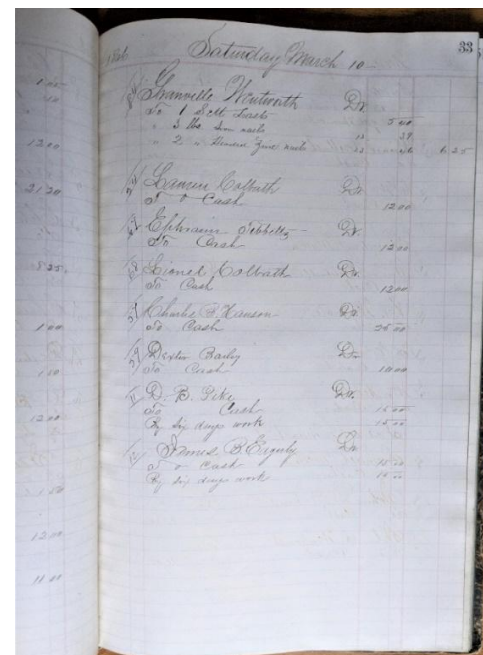 33
Saturday March 10
Granville Wentworth Dr.
To 1 Sett 5 00
" 3 lbs. nails 13 39
" 2 " nails 6 25
Colbath Dr.
To Cash 12 00
Ephraim Tebbetts Dr.
To Cash 12 00
Lionel Colbath Dr.
To Cash 12 00
Charles F. Hanson Dr.
To Cash 25 00
Dexter Bailey Dr.
To Cash 10 00
D. B. Pike Dr.
To Cash 15 00
By six days work 15 00
James B. Dr.
To Cash 15 00
By six days work 15 00
12 00
21 20
5 25
1 00
1 50
12 00
1 50
12 00
11 00